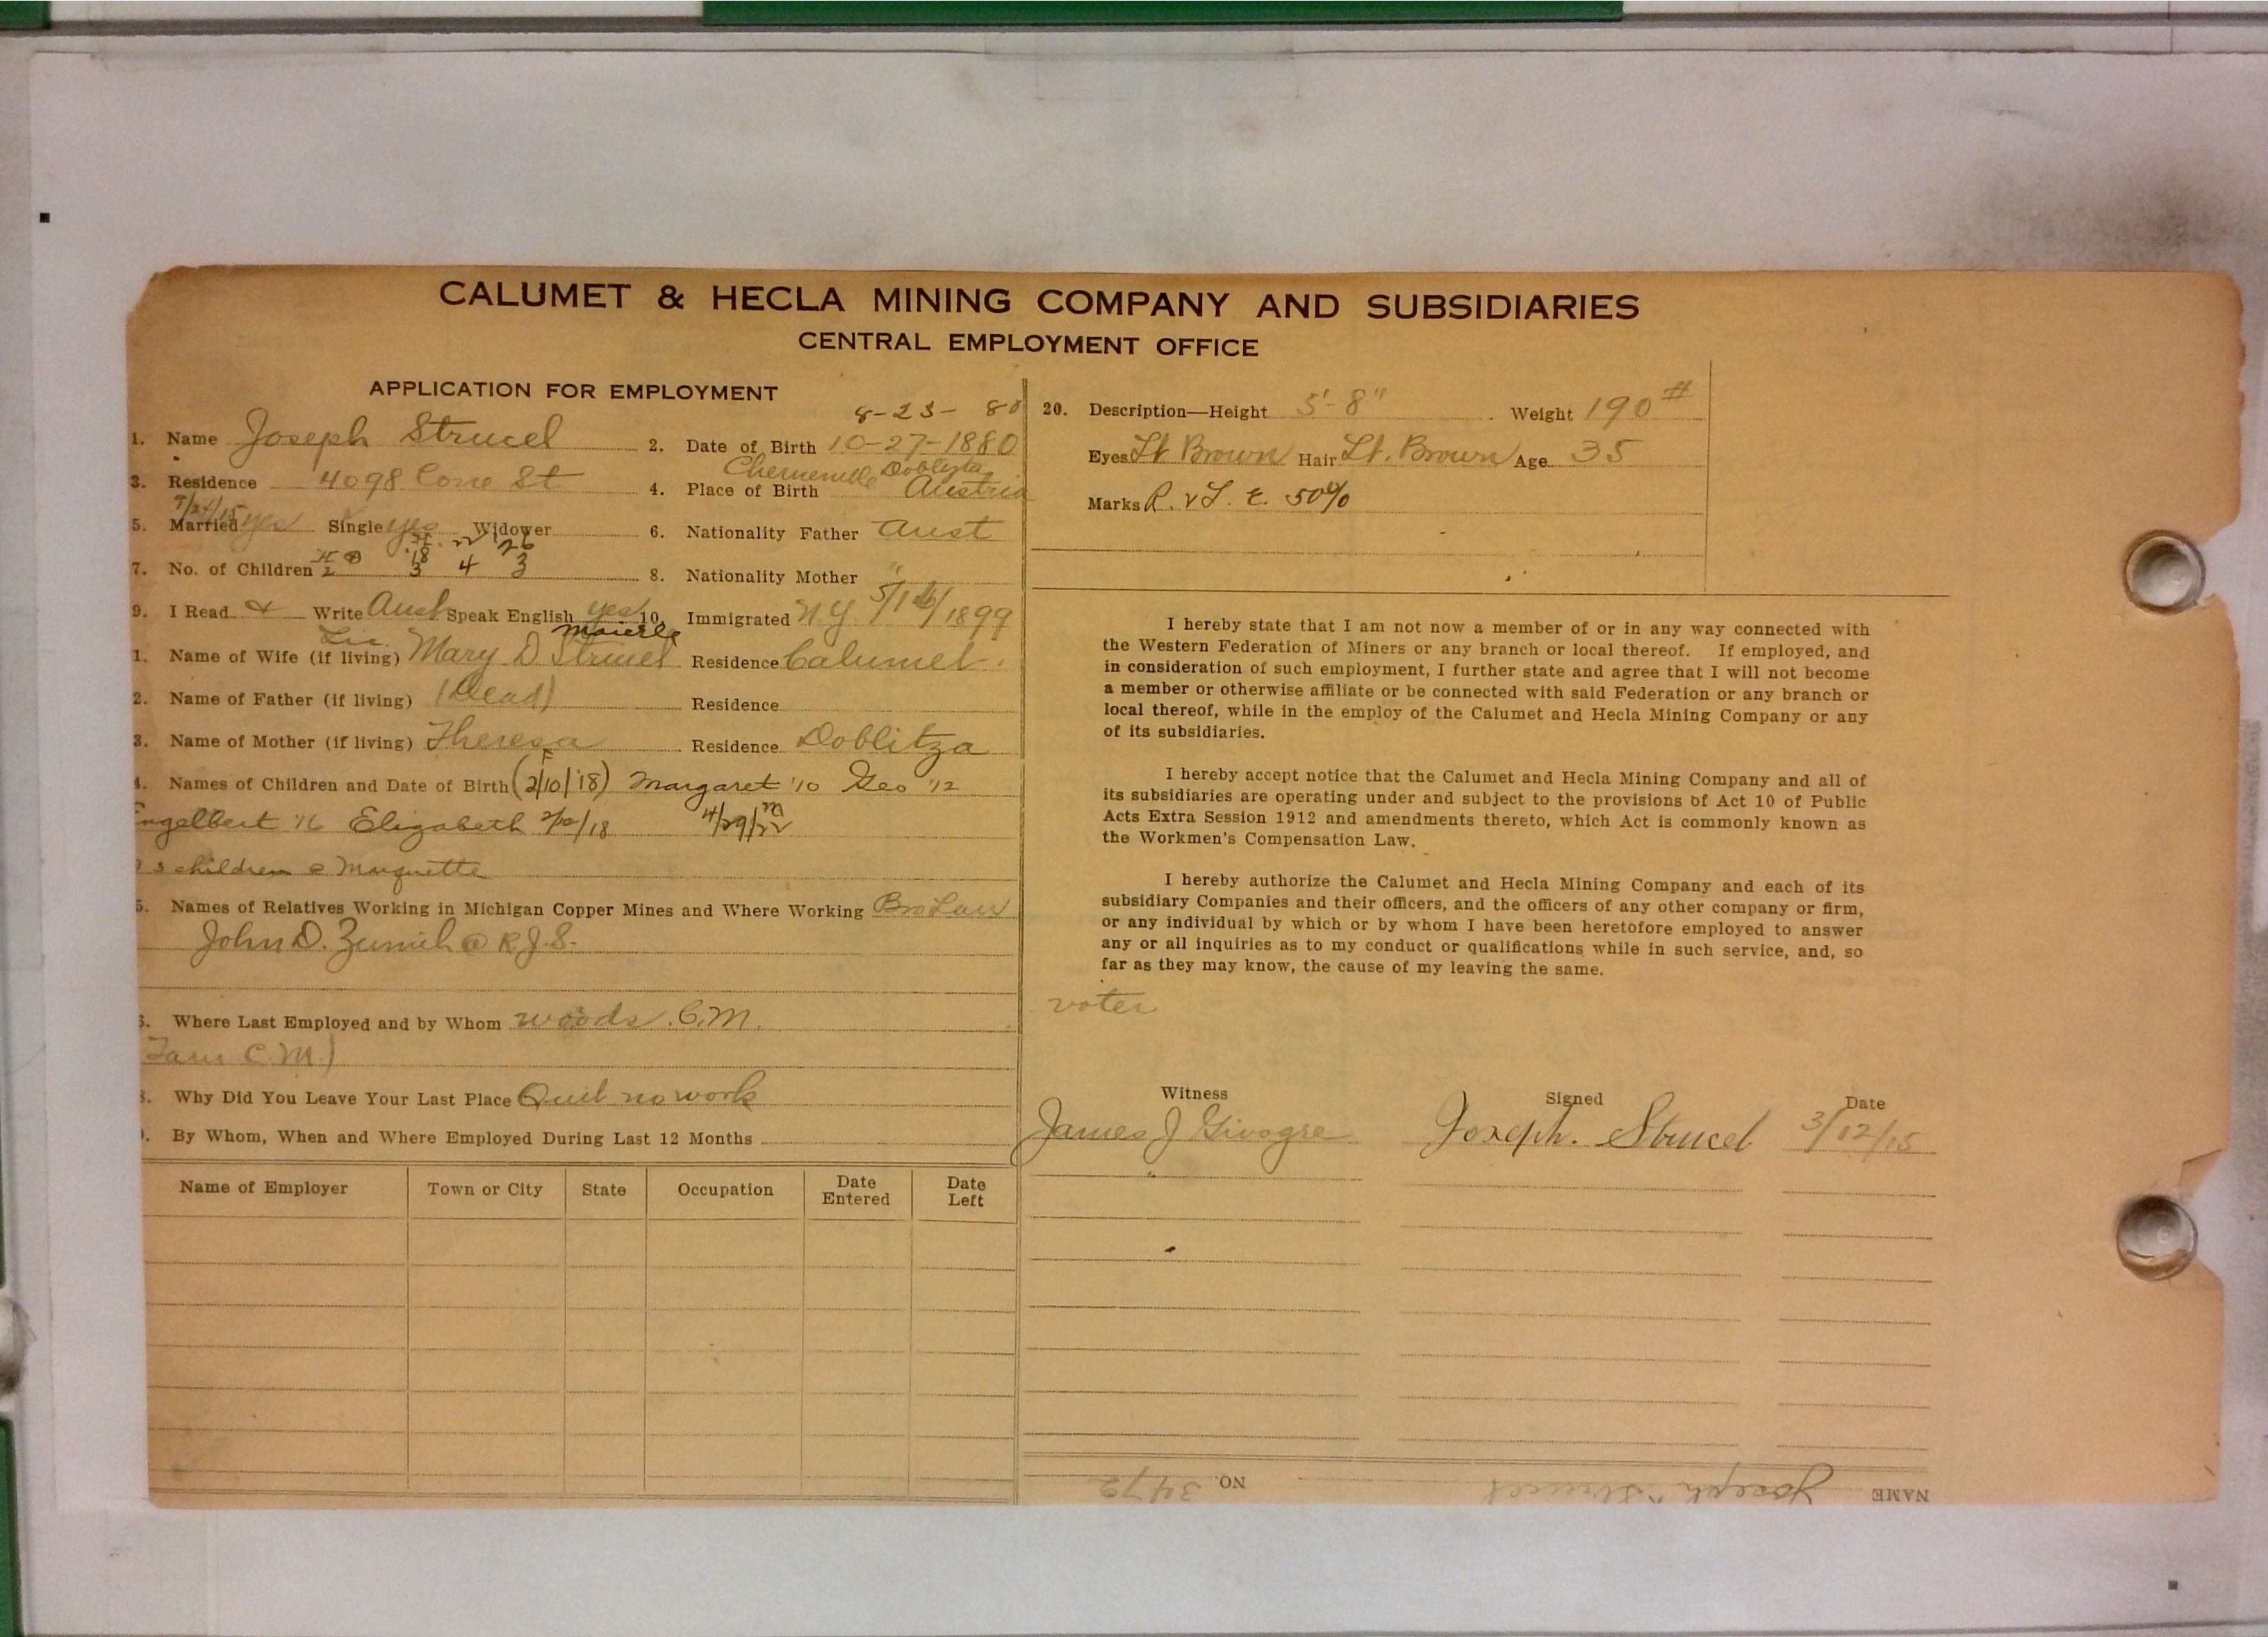 CALUMET & HECLA MINING COMPANY AND SUBSIDIARIES
CENTRAL EMPLOYMENT OFFICE
APPLICATION FOR EMPLOYMENT
8-23-80
1. Name Joseph Strucel 2. Date of Birth 10-27-1880
Doblizta
3. Residence 4098 Cone St 4. Place of Birth Austria
9/24/15
5. Married yes Single yes Widower 6. Nationality Father Aust
18 22 26
7. No. of Children 2 3 4 3 8. Nationality Mother "
9. I Read & Write Aust Speak English yes 10. Immigrated N.Y. 5/16/1899
Maierle
1. Name of Wife (if living) Mary D. Strucel Residence Calumet.
2. Name of Father (if living) (Dead) Residence
3. Name of Mother (if living) Theresa Residence Doblitza
F
4. Names of Children and Date of Birth (2/10/'18) Margaret '10 Geo '12
ngelbert '16 Elizabeth 2/10/18 4/29/22 m
3 children @ Marquette
5. Names of Relatives Working in Michigan Copper Mines and Where Working Bro Law
John D. Zunich @ R.J.S.
6. Where Last Employed and by Whom woods. C.M.
C M)
8. Why Did You Leave Your Last Place Quit no work
9. By Whom, When and Where Employed During Last 12 Months
Name of Employer Town or City State Occupation Date Entered Date Left
20. Description—Height 5'-8" Weight 190#
Eyes Lt Brown Hair Lt. Brown Age 35
Marks R. & L. E. 50%
I hereby state that I am not now a member of or in any way connected with
the Western Federation of Miners or any branch or local thereof. If employed, and
in consideration of such employment, I further state and agree that I will not become
a member or otherwise affiliate or be connected with said Federation or any branch or
local thereof, while in the employ of the Calumet and Hecla Mining Company or any
of its subsidiaries.
I hereby accept notice that the Calumet and Hecla Mining Company and all of
its subsidiaries are operating under and subject to the provisions of Act 10 of Public
Acts Extra Session 1912 and amendments thereto, which Act is commonly known as
the Workmen's Compensation Law.
I hereby authorize the Calumet and Hecla Mining Company and each of its
subsidiary Companies and their officers, and the officers of any other company or firm,
or any individual by which or by whom I have been heretofore employed to answer
any or all inquiries as to my conduct or qualifications while in such service, and, so
far as they may know, the cause of my leaving the same.
voter
Witness Signed Date
James J Joseph. Strucel 3/12/15
NAME Joseph Strucel NO. 3472